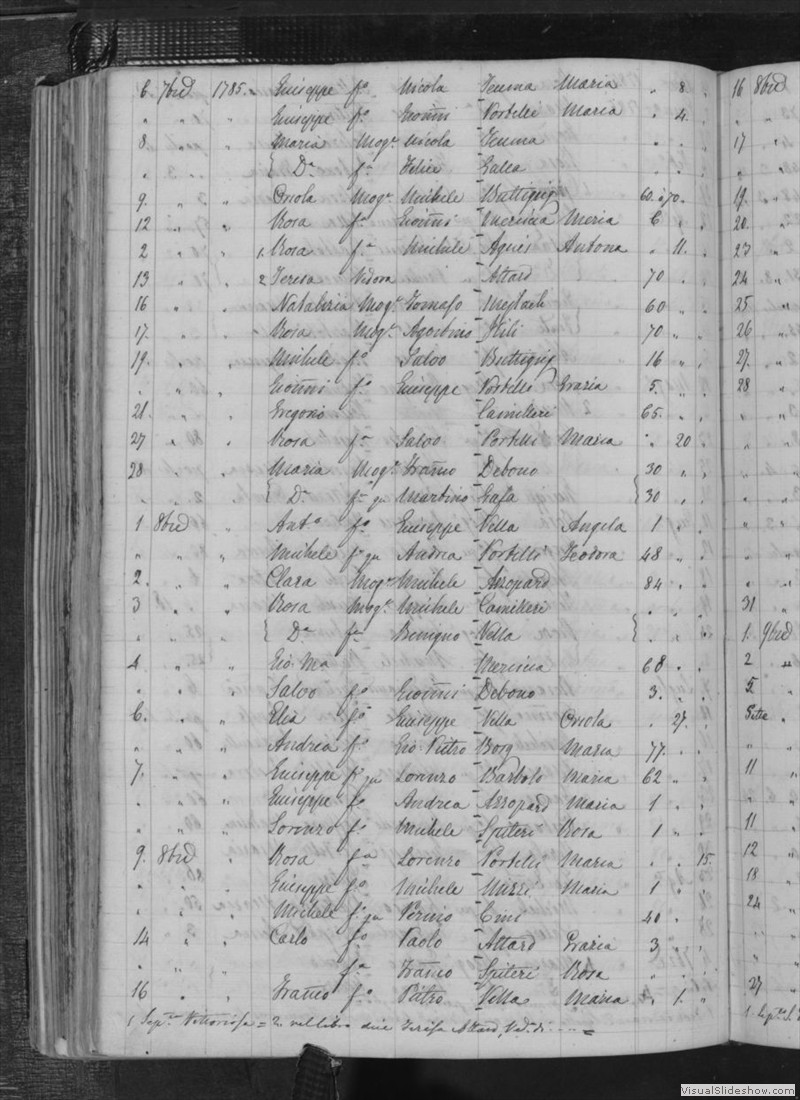 6 7bre 1785 Giuseppe fo Nicola Temma Maria " 8 "
" " " Giuseppe fo Gioñni Portelli Maria " 4 "
8 " " Maria Moge Nicola Temma
" " " { Da fa Felice Galea
9 " " Orsola Moge Michele Buttigieg 60. a 70.
12 " " Rosa fa Gioñni Mercieca Maria 6 " "
2 " " 1. Rosa fa Michele Agius Antona " 11 "
13 " " 2. Teresa Vedova " Attard 70 " "
16 " " Natalizia Moge Tomaso 60 " "
17 " " Rosa Moge Agostino Stili 70 " "
19 " " Michele fo Salvo Buttigieg 16 " "
" " " Gioñni fo Giuseppe Portelli Grazia 5 " "
21 " " Gregorio Camilleri 65 " "
27 " " Rosa fa Salvo Portelli Maria " 20
28 " " Maria Moge Frañco Debono 30 " "
" " " { Da fa qu Martino Safa { 30 " "
1 8bre " Anto fo Giuseppe Vella Angela 1 " "
" " " Michele fo qu Andrea Portelli Teodora 48 " "
2 " " Clara Moge Michele Azzopard 84 " "
3 " " Rosa Moge Michele Camilleri " " "
" " " { Da fa Benigno Vella } " " "
4 " " Gio: Ma Mercieca 68 " "
" " " Salvo fo Gioñni Debono 3 " "
6 " " Elia fo Giuseppe Vella Orsola " 27 "
" " " Andrea fo Gio Pietro Borg Maria 77 " "
7 " " Giuseppe fo qu Lorenzo Bartolo Maria 62 " "
" " " Giuseppe fo Andrea Azzopard Maria 1 " "
" " " Lorenzo fo Michele Spiteri Rosa 1 " "
9 8bre " Rosa fa Lorenzo Portelli Maria " " 15
" " " Giuseppe fo Michele Mizzi Maria 1 " "
" " " Michele fo qu 40 "
14 " " Carlo fo Paolo Attard Grazia 3 " "
" " " fa Frañco Spiteri Rosa " " "
16 " " Frañco fo Pietro Vella Maria " 1 "
1 Vittoriosa = 2 nel libro dice Teresa Attard, Vda di .... =
16 8bre
17
19
20
23
24
25
26
27
28
31
1 9bre
2
5
11
11
12
18
24
27
VisualSlideshow.com